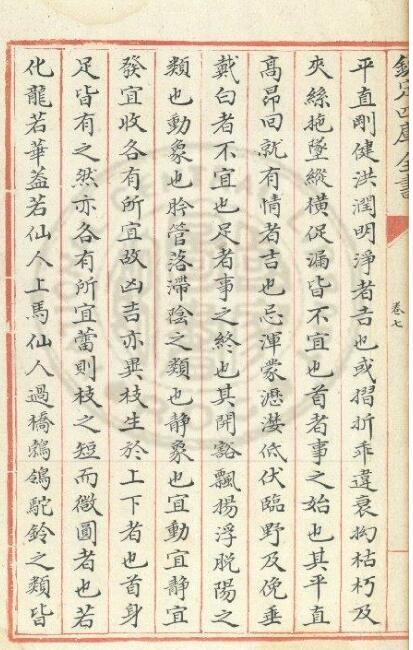 欽定四庫全書
卷七
平直剛健洪潤明淨者吉也或摺折乖違衰拘枯朽及
夾絲拖墜縱橫促漏皆不宜也首者事之始也其平直
高昂回就有情者吉也忌渾蒙瀝㳠低伏臨野及俛垂
戴白者不宜也足者事之終也其開豁飄揚浮脫陽之
類也動象也肣管落滯陰之類也静象也宜動宜静宜
發宜收各有所宜故凶吉亦異枝生於上下者也首身
足皆有之然亦各有所宜蕾則枝之短而微圓者也若
化龍若華葢若仙人上馬仙人過橋鵓鴿駝鈴之類皆